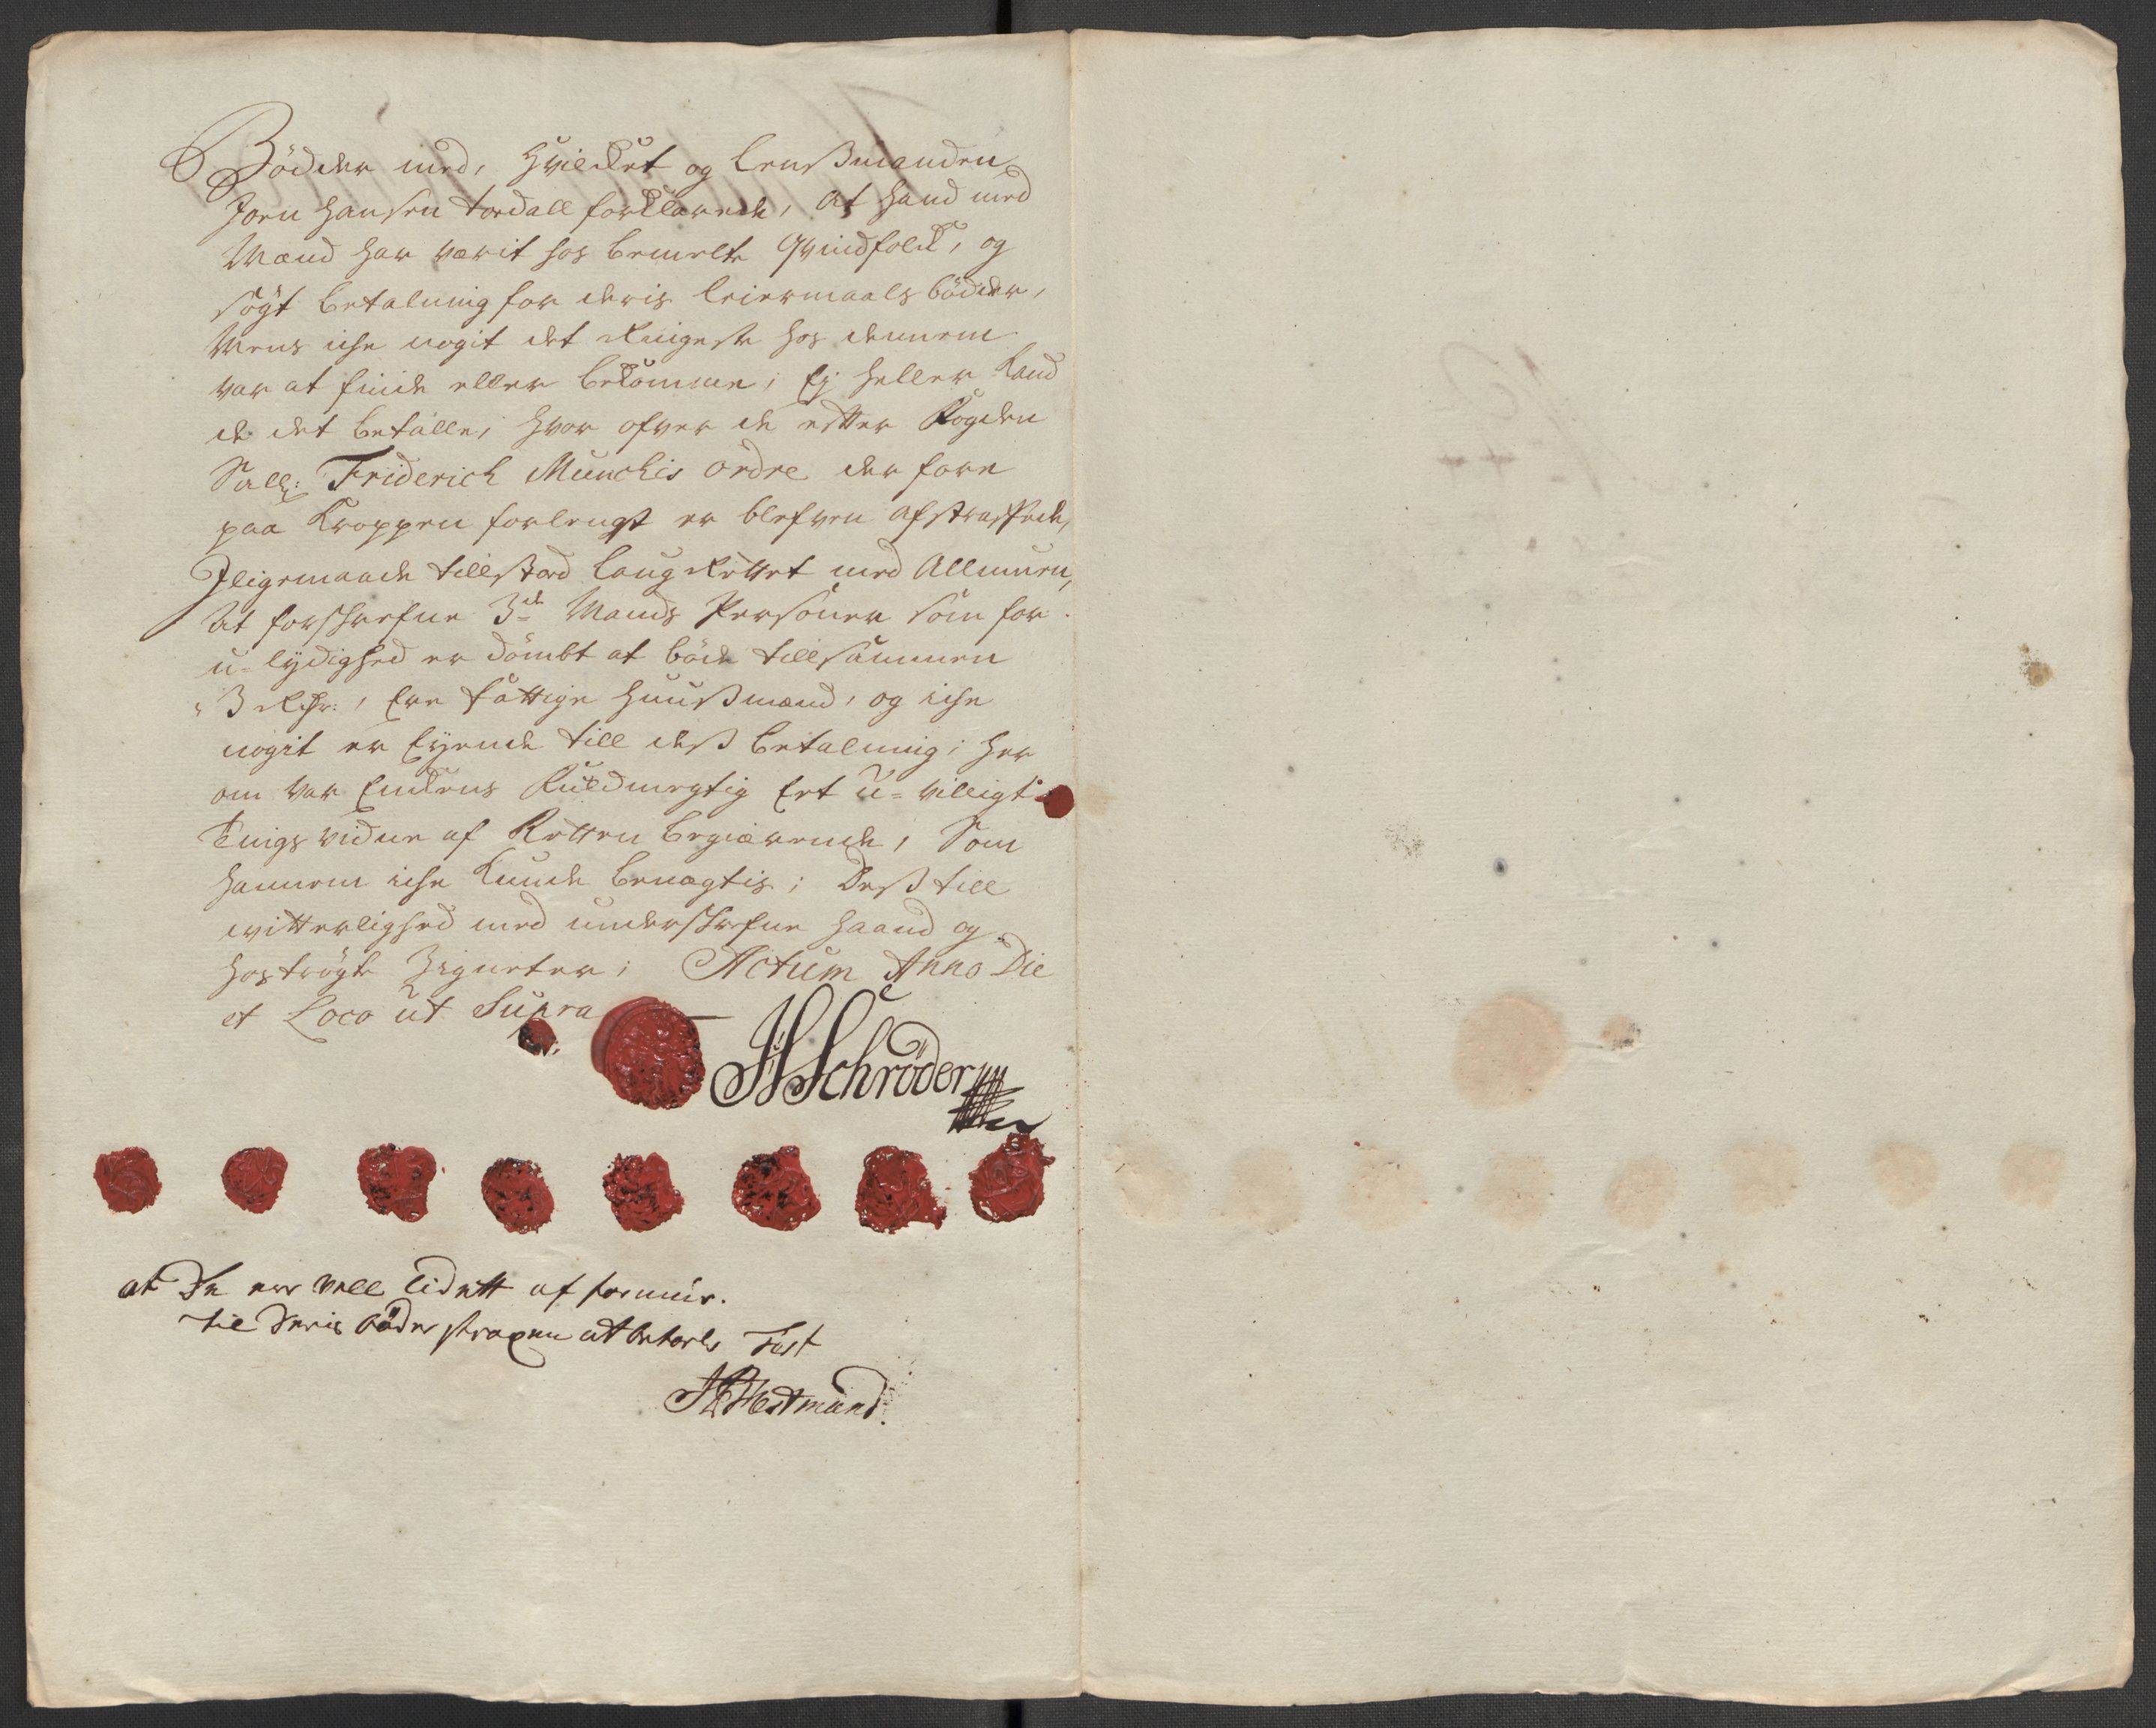 Bödder med, Hvilcket og Lensßmanden
Joen Hansen Tordall forklarede, At hand med
Mænd har værit hos bemelte Qvindfolck, og
søgt betalning for deris leiermaals bödder,
Mens iche nogit det Ringeste hos dennem
var at finde eller bekomme; Ej heller kand
de det betalle, hvor ofver de efter Fogden
Sall: Friderich Munchis ordre der fore
paa Kroppen forlengst er blefven afstraffede,
Jligemaade tillstoed Laug Rettet med Allmuen,
At forschrefne 3de Mands Personer som for
u-lydighed er dömbt at böde tillsammen
3 Rdr:, Ere fattige Huußmænd, og iche
nogit er Eyende till deß betalning; her
om var Enckens Fuldmegtig Eet u-villigt
Tings vidne af Retten begiærende, Som
hannem iche kunde benægtis; Deß till
witterlighed med underschrefne haand og
hoströgte Zigneter; Actum Anno Die
et Loco ut Supra
HSchröder
at De er vell lidett af formue
til deris böder straxen at betale Test
Hestmand